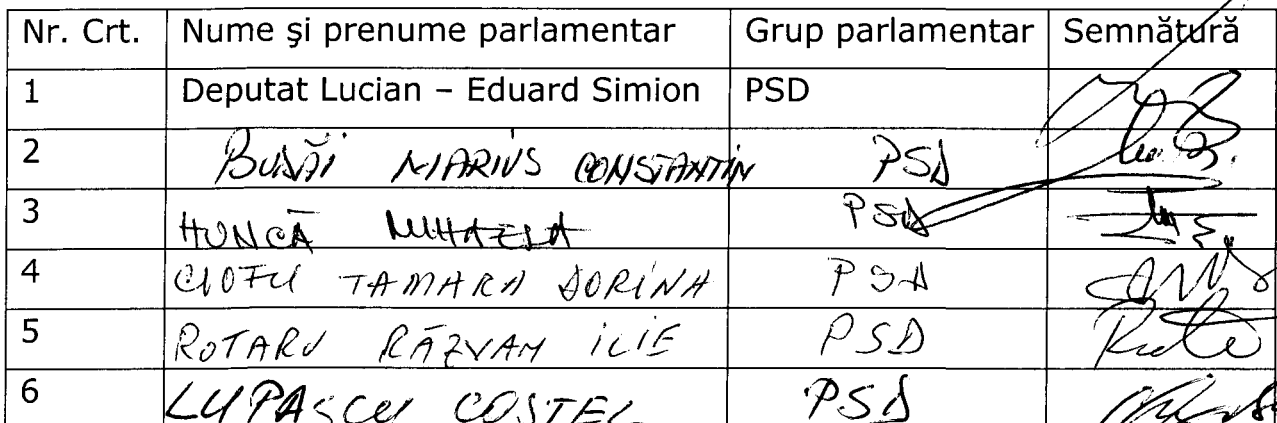 Nr. Crt. Nume şi prenume parlamentar Grup parlamentar Semnătură
1 Deputat Lucian – Eduard Simion PSD
2 BUNĂI MARIUS CONSTANTIN PSD
3 HUNCĂ MIHAELA PSD
4 CIOFU TAMARA DORINA PSD
5 ROTARU RĂZVAN ILIE PSD
6 LUPAȘCU COSTEL PSD